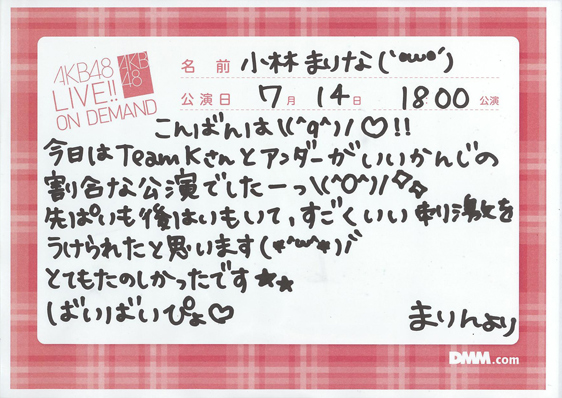 AKB48
LIVE!!
ON DEMAND
AKB
48
名前 小林まりな(`・ω・´)
公演日 7月 14日 18:00 公演
こんばんは\(^q^)/♡!!
今日はTeamKさんとアンダーがいいかんじの
割合な公演でしたーっ\(^O^)/☆☆
先ぱいも後はいもいて、すごくいい刺激を
うけられたと思います(*^ω^*)ﾞ
とてもたのしかったです★★
ばいばいぴょ♡
まりんより
DMM.com